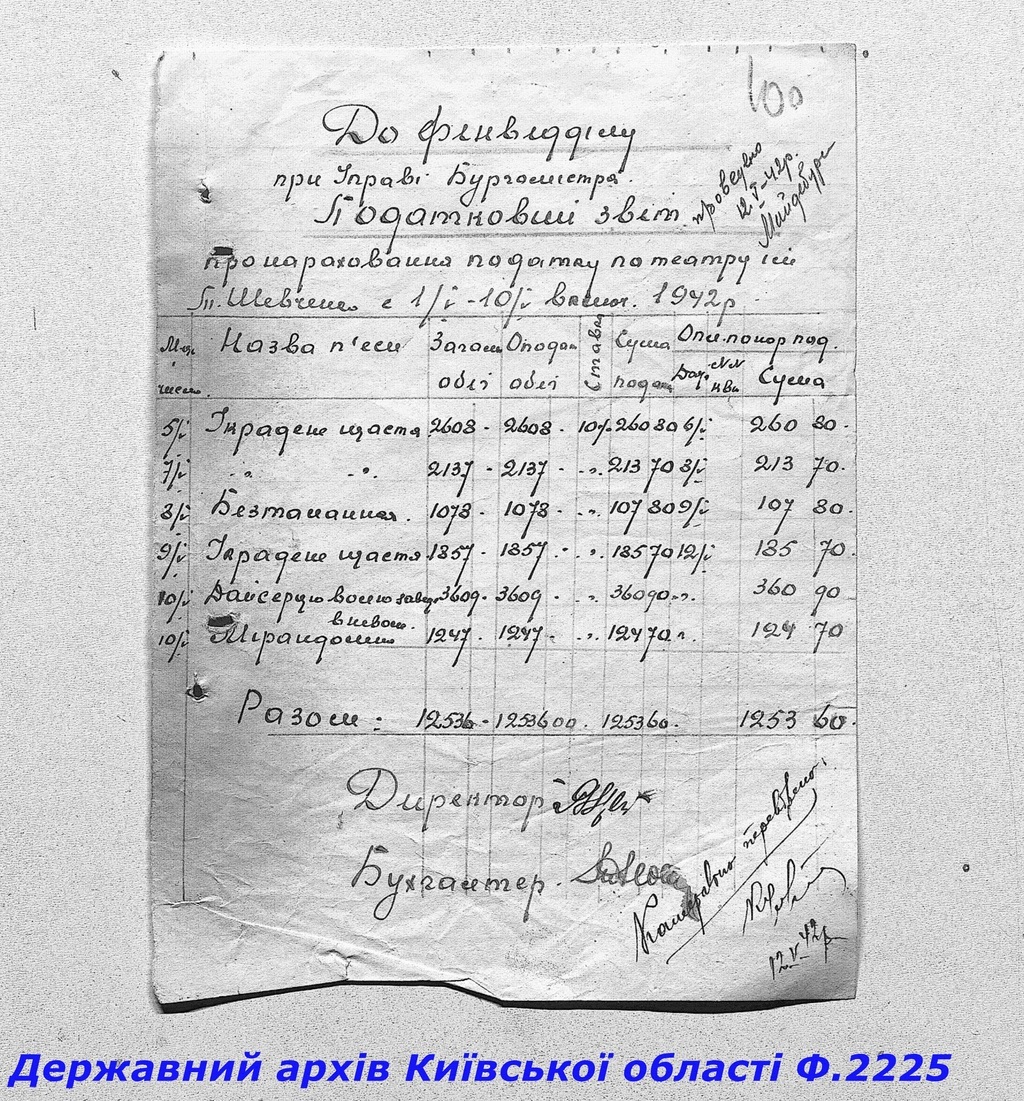 100
До фінвідділу
при Управі Бургомістра.
Податковий звіт
проведено
12-V-42р.
про нараховання податку по театру ім
Т. Шевченко с 1/V-10/V включ. 1942р
Назва п'єси Загальн Оподат Ставка Сума
число. обліг обліг подат Дат. №№ кви Сума
5/V Украдене щастя 2608 - 2608 - 10% 260 80 6/V 260 80 -
7/V " " 2137 - 2137 - " 213 70 8/V 213 70 -
8/V Безталанная. 1078 - 1078 - " 107 80 9/V 107 80 -
9/V Украдене щастя 1857 - 1857 - " 185 70 12/V 185 70 -
10/V 3609 - 3609 - " 360 90 " 360 90
10/V Мірандоліно 1247 - 1247 - " 124 70 " 124 70
Разом: 12536 - 12536 00 1253 60 - 1253 60 -
Директор
Бухгалтер.
Камерально перевірено:
12-V-42р
Державний архів Київської області Ф.2225